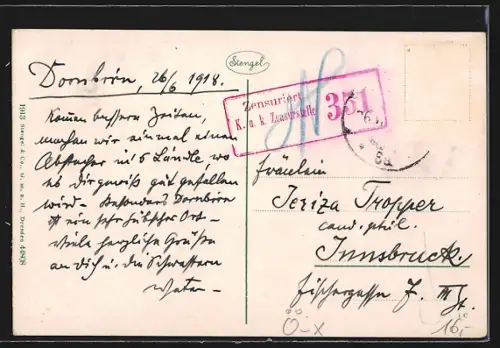 Stengel
Dornbirn, 26/6 1918.
Kommen bessere Zeiten,
machen wir einmal einen
Abstecher in's Ländle, wo
es dir gewiß gut gefallen
wird – Besonders Dornbirn
ist ein sehr hübscher Ort –
Viele herzliche Grüße
an dich u. die Schwestern
1913 Stengel & Co., G. m. b. H., Dresden 44808
Zensuriert
K. u. k. Zensurstelle
351
Fräulein
Tropper
cand. phil.
Innsbruck
Fischergasse 7. III St.
Ö-X
16,-